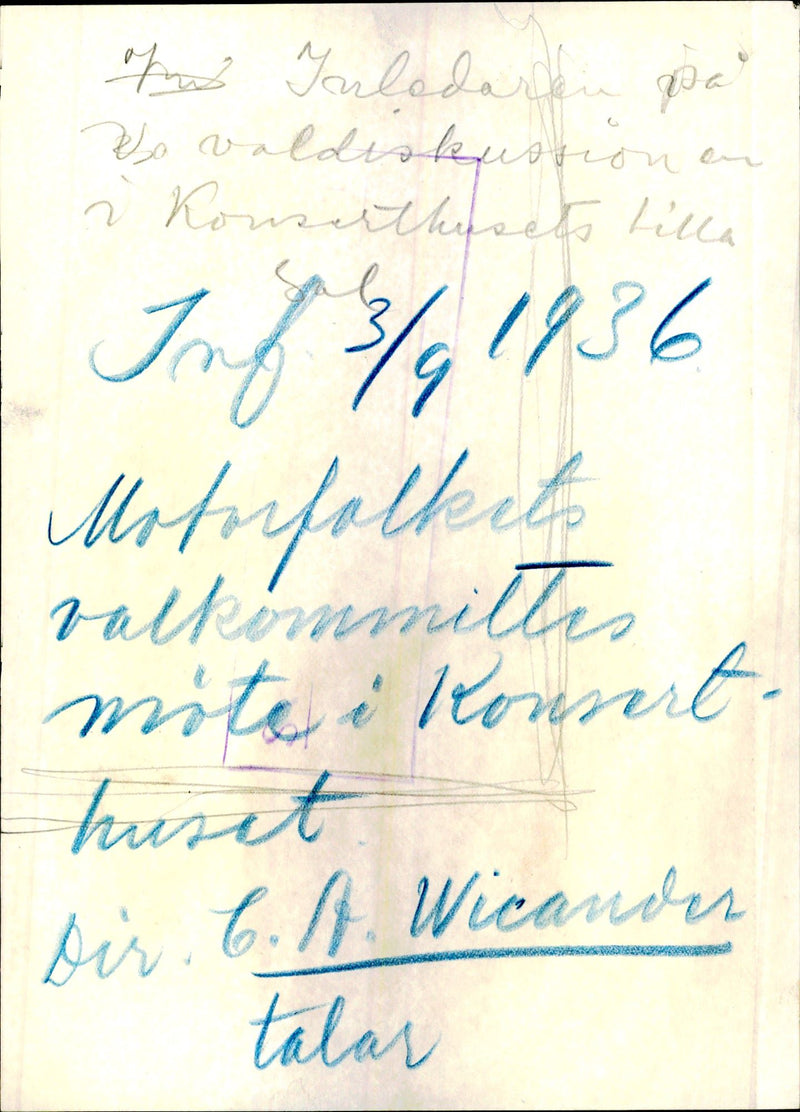 Inledaren på
valdiskussionen
i Konserthusets lilla
Sal
Inf. 3/9 1936
Motorfolkets
valkommittés
möte i Konsert-
huset.
Dir. C. A. Wicander
talar